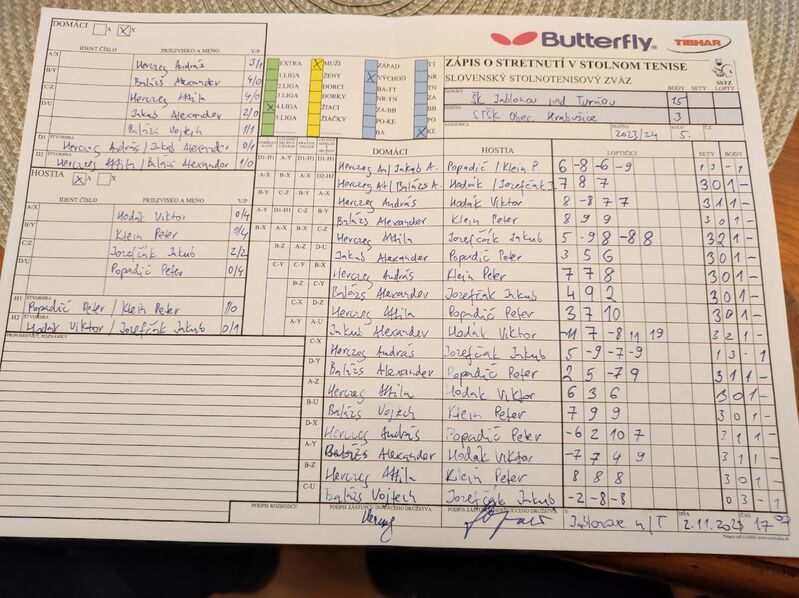 DOMÁCI A X
Butterfly
TIBHAR
IDENT.ČÍSLO PRIEZVISKO A MENO V/P
A/X Herczeg András 3/1
B/Y Balázs Alexander 4/0
C/Z Herczeg Attila 4/0
D/U Jakub Alexander 2/0
Balázs Vojtech 1/1
D1 ŠTVORHRA Herczeg András / Jakub Alexander 0/1
D2 ŠTVORHRA Herczeg Attila / Balázs Alexander 1/0
HOSTIA A X
IDENT.ČÍSLO PRIEZVISKO A MENO V/P
A/X Hodák Viktor 0/4
B/Y Klein Peter 0/4
C/Z Jozefčák Jakub 2/2
D/U Popadič Peter 0/4
H1 ŠTVORHRA Popadič Peter / Klein Peter 1/0
H2 ŠTVORHRA Hodák Viktor / Jozefčák Jakub 0/1
PRIPOMIENKY, POZNÁMKY
EXTRA X MUŽI ZÁPAD TT
1.LIGA ŽENY X VÝCHOD NR
2.LIGA DORCI BA-TT TN
3.LIGA DORKY NR-TN ZA
X 4.LIGA ŽIACI ZA-BB BB
5.LIGA ŽIAČKY PO-KE PO
BA X KE
ZÁPIS O STRETNUTÍ V STOLNOM TENISE
SLOVENSKÝ STOLNOTENISOVÝ ZVÄZ
SSTZ
BODY SETY LOPTY
DOMÁCI ŠK Jablonov nad Turňou 15
HOSTIA STŠK Obec Hrabušice 3
2023/24 KOLO 5. Č.Z
DOMÁCI HOSTIA LOPTIČKY SETY BODY
D1-H1 Herczeg An/Jakub A. Popadič / Klein P. 6 -8 -6 -9 1 3 - 1
D2-H2 Herczeg At/Balázs A. Hodák / Jozefčák J. 7 8 7 3 0 1 -
A-X Herczeg András Hodák Viktor 8 -8 7 7 3 1 1 -
B-Y Balázs Alexander Klein Peter 8 9 9 3 0 1 -
C-Z Herczeg Attila Jozefčák Jakub 5 -9 8 -8 8 3 2 1 -
D-U Jakub Alexander Popadič Peter 3 5 6 3 0 1 -
A-Y Herczeg András Klein Peter 7 7 8 3 0 1 -
B-Z Balázs Alexander Jozefčák Jakub 4 9 2 3 0 1 -
C-U Herczeg Attila Popadič Peter 3 7 10 3 0 1 -
D-X Jakub Alexander Hodák Viktor -11 7 -8 11 19 3 2 1 -
C-X Herczeg András Jozefčák Jakub 5 -9 -7 -9 1 3 - 1
D-Y Balázs Alexander Popadič Peter 2 5 -7 9 3 1 1 -
A-Z Herczeg Attila Hodák Viktor 6 3 6 3 0 1 -
B-U Balázs Vojtech Klein Peter 7 9 9 3 0 1 -
D-X Herczeg András Popadič Peter -6 2 10 7 3 1 1 -
A-Y Balázs Alexander Hodák Viktor -7 7 4 9 3 1 1 -
B-Z Herczeg Attila Klein Peter 8 8 8 3 0 1 -
C-U Balázs Vojtech Jozefčák Jakub -2 -8 -8 0 3 - 1
PODPIS ROZHODCU PODPIS ZÁSTUPCU DOMÁCEHO DRUŽSTVA PODPIS ZÁSTUPCU HOSŤUJÚCEHO DRUŽSTVA V Jablonove n/T DŇA 2.11.2023 ČAS 17 00